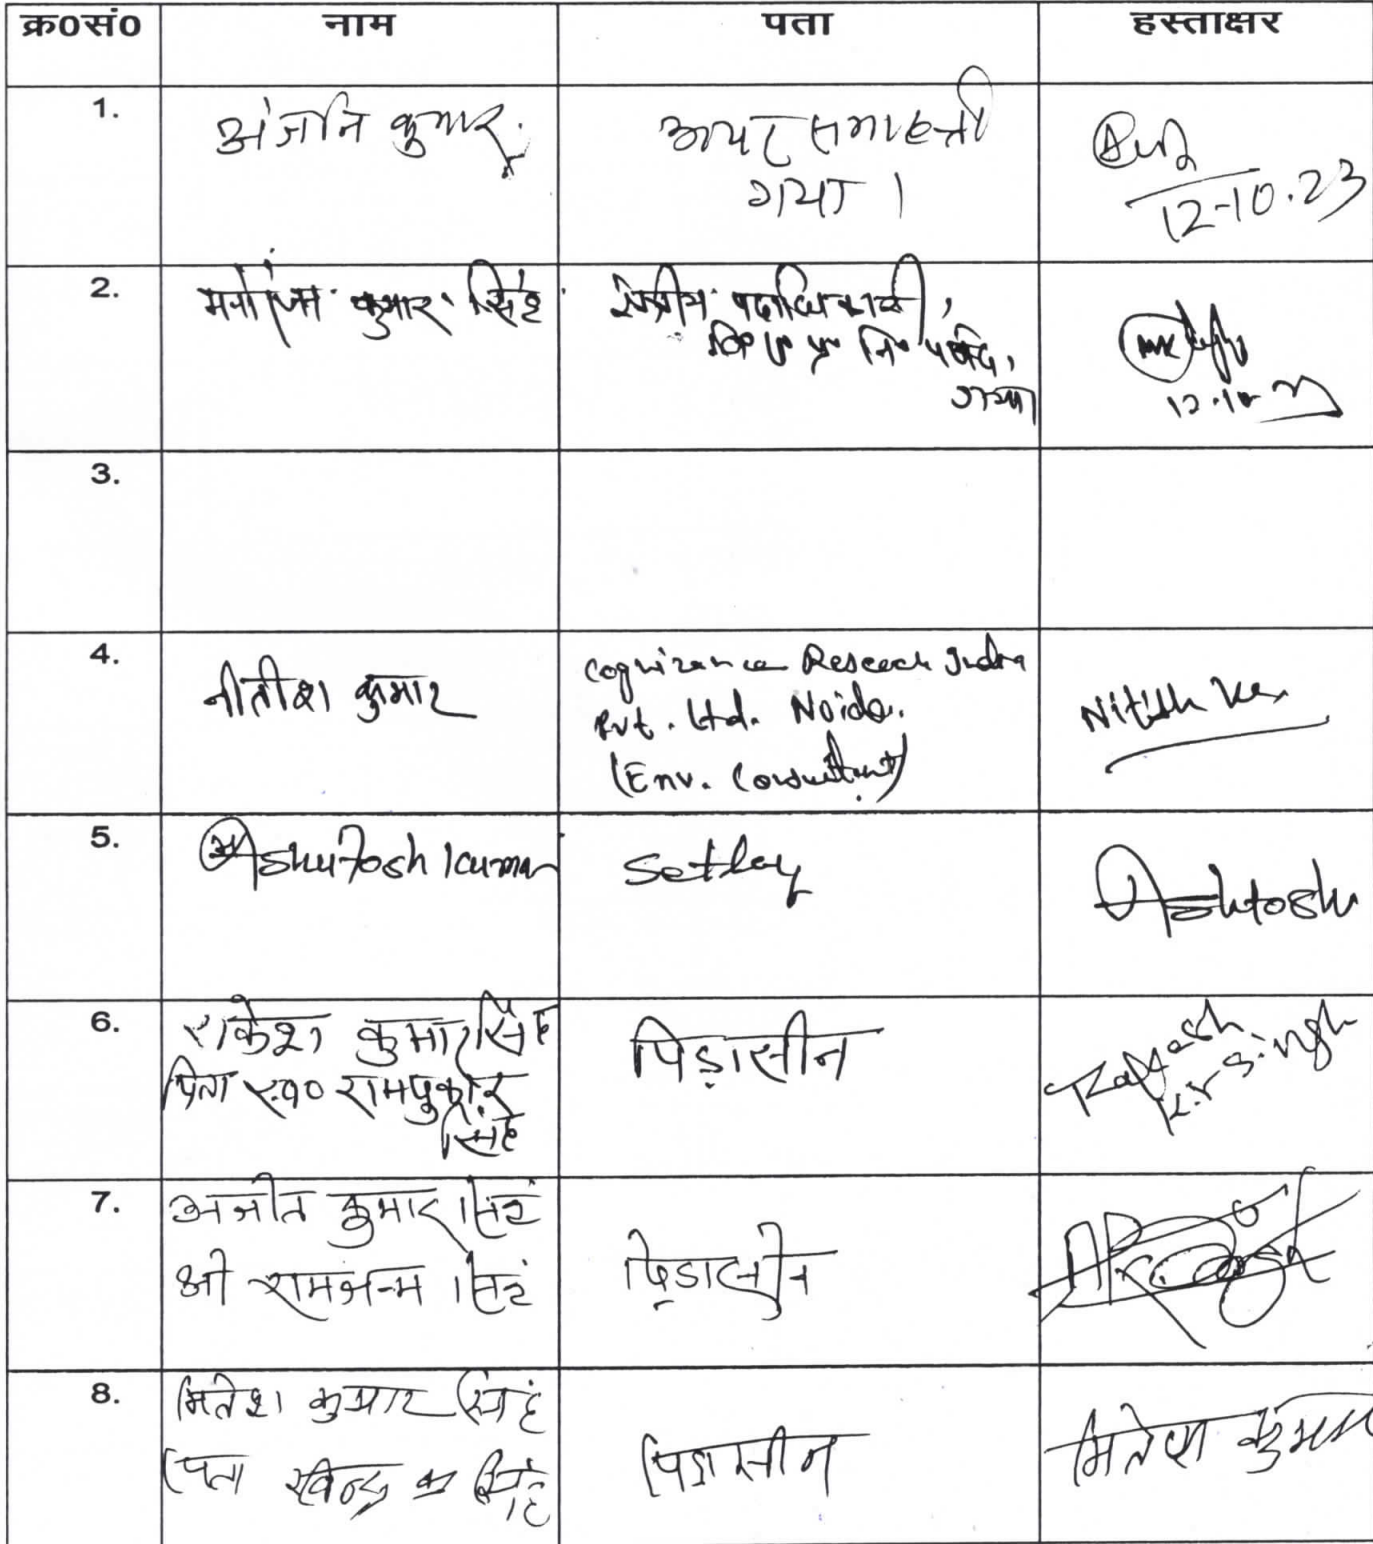 क्र0सं0 नाम पता हस्ताक्षर
1. अंजनि कुमार अपर समाहर्ता
गया ।
12-10.23
2. कुमार सिंह क्षेत्रीय पदाधिकारी,
गया
3.
4. नीतीश कुमार Cognizance Research India
Pvt. Ltd. Noida.
(Env. Consultant)
Nitish Kr.
5. Ashutosh Kumar Ashtosh
6. राकेश कुमार सिंह
पिता स्व0 रामपुकार
सिंह
पिड़ासीन
Rakesh
Kr Singh
7. अजीत कुमार सिंह
श्री रामजन्म सिंह
पिडासीन
8. मितेश कुमार सिंह
पिता रविन्द्र कु सिंह
पिडासीन
मितेश कुमार